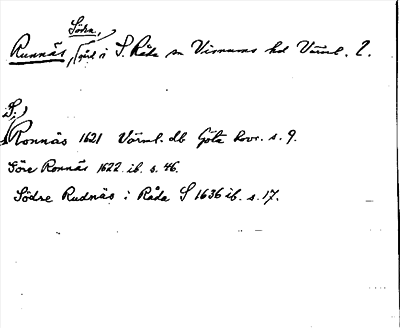 Södra,
Runnäs, gård i S. Råda sn Visnums hd Värml. l.
S.
Ronnäs 1621 Värml. db Göta hovr. s. 9.
Söre Ronnäs 1622 ib. s. 46.
Södre Rudnäs i Råda S 1636 ib. s. 17.